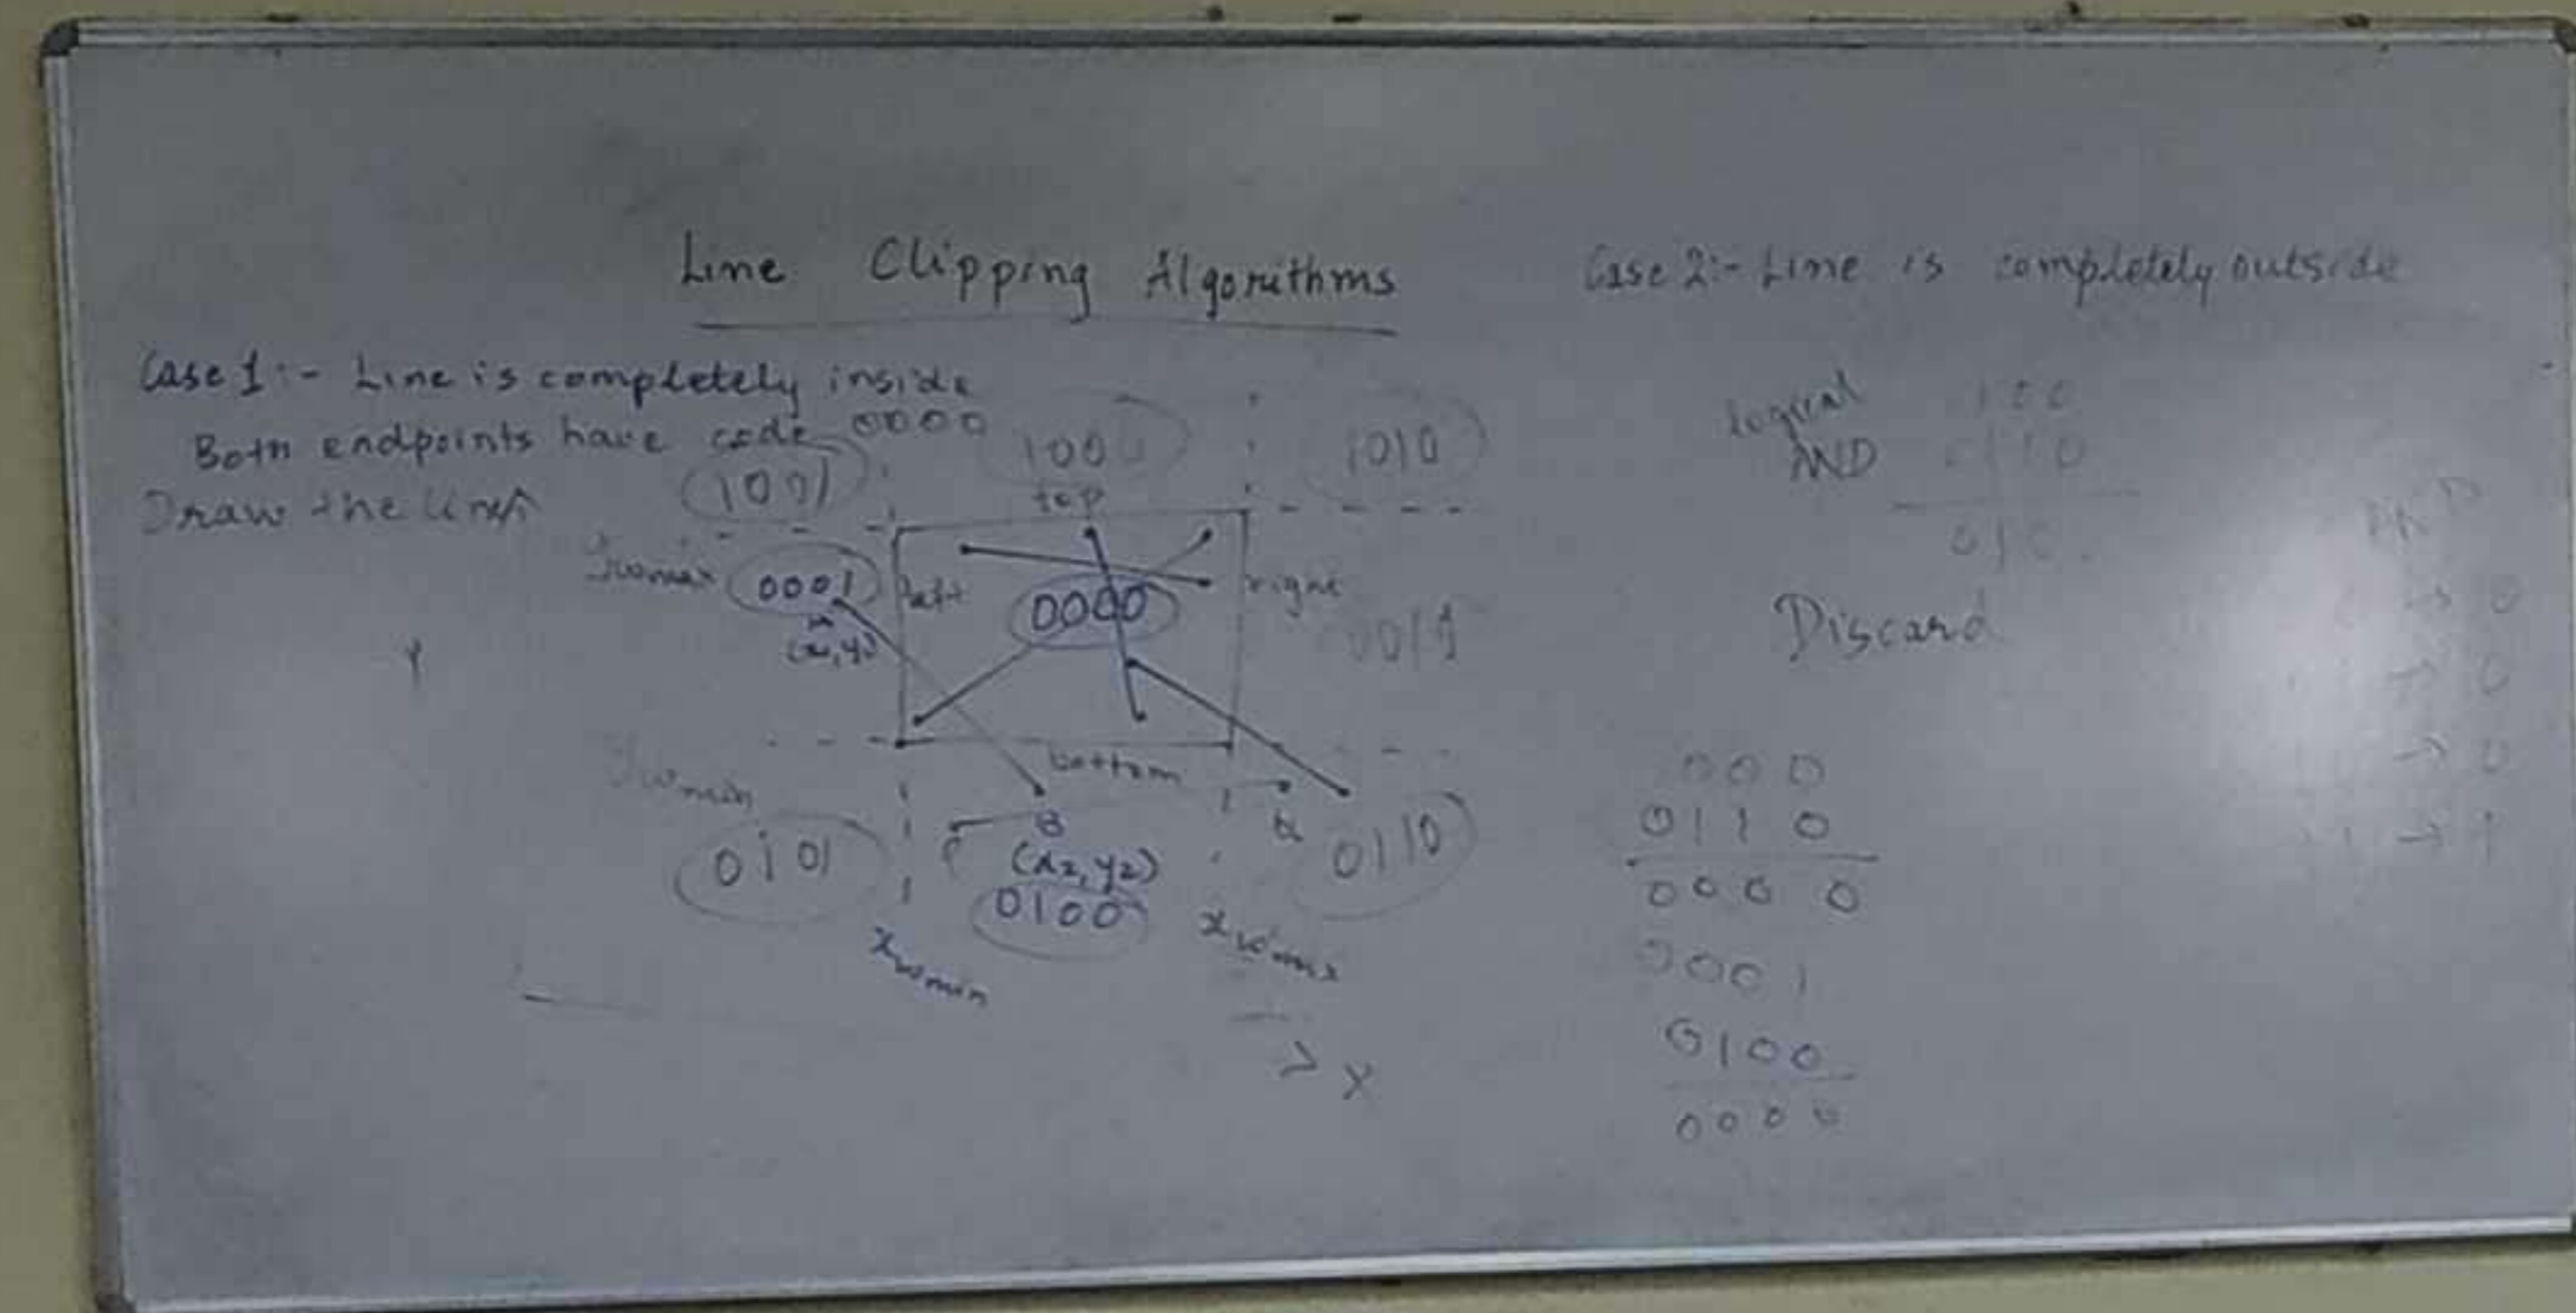 Line Clipping Algorithms
Case 1:- Line is completely inside
Both endpoints have code 0000
Draw the line
1001
100
1010
top
Ywmax
0001
left
0000
right
Y
bottom
Ywmin
B
0101
(x2, y2)
0110
0100
xwmin
xwmax
> X
Case 2:- Line is completely outside
logical
AND
Discard
000
0110
0000
0001
0100
0000
AND
→ 0
→ 0
→ 0
→ 1